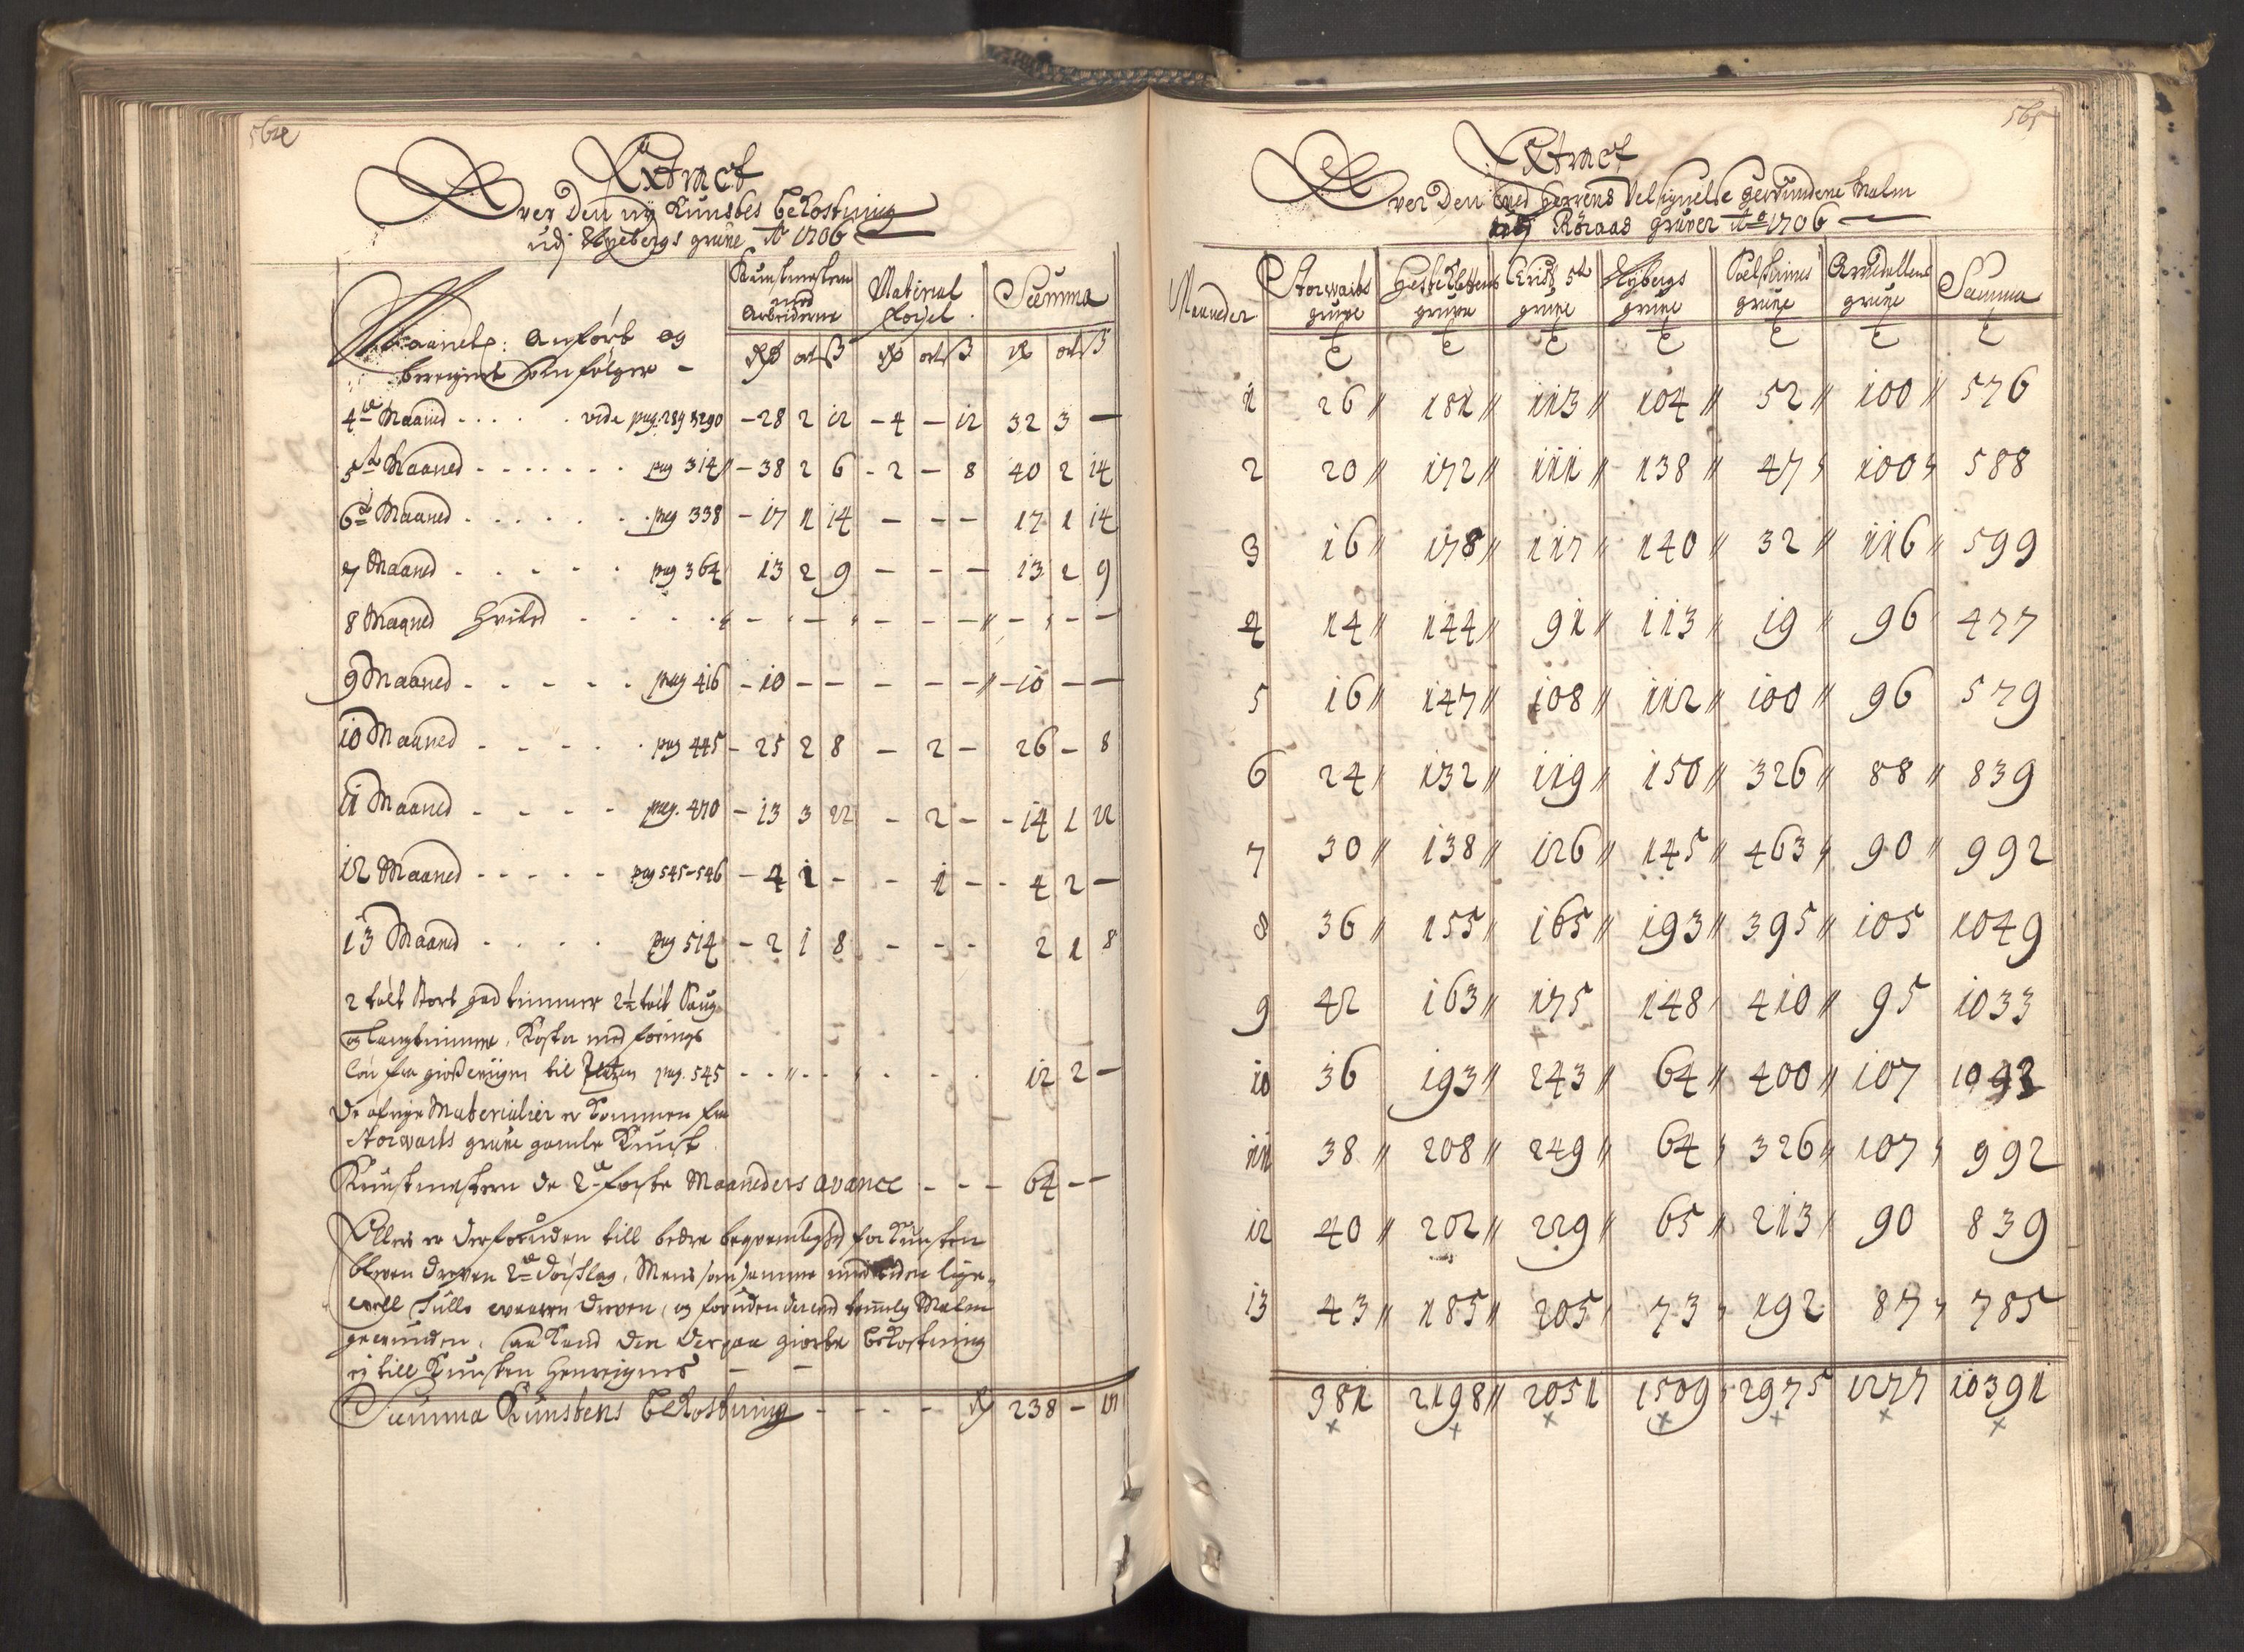 564
Extract
Over Den ny Kunstes bekostning
udj Nyebergs grube Ao 1706
Maanetz: Anført og
beregnet som følger –
Kunstmesteren med Arbeiderne
Material
Summa
Rdr ort ß Rdr ort ß Rdr ort ß
4de Maaned - - - vide pag. 289 & 290 – 28 2 12 – 4 – 12 32 3 –
5te Maaned - - - pag 314 – 38 2 6 – 2 – 8 40 2 14
6te Maaned - - - pag 338 – 17 1 14 – – – 17 1 14
7 Maaned - - - pag 364 13 2 9 – – – 13 2 9
8 Maaned Hviled - - - – – – – – – – – –
9 Maaned - - - pag 416 – 10 – – – – – – 10 – –
10 Maaned - - - pag 445 – 25 2 8 – 2 – 26 – 8
11 Maaned - - - pag. 470 – 13 3 22 – 2 – – 14 1 22
12 Maaned - - - pag 545-546 – 4 1 – – 1 – – 4 2 –
13 Maaned - - - pag 514 – 2 1 8 – – – 2 1 8
2 tolt stort god timmer 2½ tolt Saug
og Langtimmer, Koster med førings
løn fra til Platzen pag. 545 - - - 12 2 –
De øfrige Materialier er kommen fra
Storwarts grube gamle Kunst
Kunstmesteren de 2de første Maaneders avance - - - 64 – –
Ellers er derforuden till bedre beqvemlighed for Kunsten
blewen drewen 2de Mens samme uden lige-
well skulle wæren drewen, og foruden der wed Malm
gewunden, saa Kand den derpaa giorte bekostning
ej till Kunsten henreignes – –
Summa Kunstens bekostning - - - - Rdr 238 –
565
Extract
Over Den med herrens Velsignelse gewundene Malm
udj Røraas gruber Ao 1706
Maaneder Storwarts grube Hestklettens grube Christ: 5te grube Nybergs grube grube Arwedallens grube Summa
1 26 〃 181 〃 113 〃 104 〃 52 〃 100 〃 576
2 20 〃 172 〃 111 〃 138 〃 47 〃 100 〃 588
3 16 〃 178 〃 117 〃 140 〃 32 〃 116 〃 599
4 14 〃 144 〃 91 〃 113 〃 19 〃 96 〃 477
5 16 〃 147 〃 108 〃 112 〃 100 〃 96 579
6 24 〃 132 〃 119 〃 150 〃 326 〃 88 〃 839
7 30 〃 138 〃 126 〃 145 〃 463 〃 90 〃 992
8 36 〃 155 〃 165 〃 193 〃 395 〃 105 1049
9 42 163 〃 175 148 〃 410 〃 95 1033
10 36 193 〃 243 〃 64 〃 400 〃 107 1043
11 38 〃 208 〃 249 〃 64 〃 326 〃 107 〃 992
12 40 〃 202 〃 229 〃 65 〃 213 〃 90 839
13 43 〃 185 〃 205 〃 73 〃 192 87 〃 785
381 2198 〃 2051 1509 〃 2975 1277 10391
× × × × × × ×